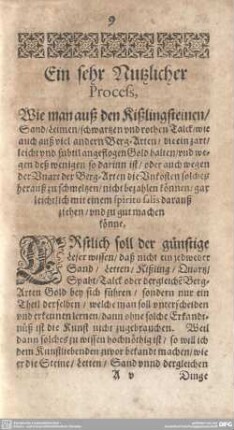 9
Ein sehr Nutzlicher
Process,
Wie man auß den Kißlingsteinen/
Sand/Leimen/schwartzen vnd rothen Talck/wie
auch auß viel andern Berg-Arten/ die ein zart/
leicht vnd subtil angeflogen Gold halten/vnd we-
gen deß wenigen so darinn ist/ oder auch wegen
der Vnart der Berg-Arten die Vnkosten solches
herauß zu schmeltzen/nicht bezahlen können/gar
leichtlich mit einem spiritu salis darauß
ziehen/vnd zu gut machen
könne.
ERstlich soll der günstige
Leser wissen/ daß nicht ein jedweder
Sand/ Letten/ Kißling/ Quartz/
Spaht/Talck oder dergleiche Berg-
Arten Gold bey sich führen/ sondern nur ein
Theil derselben/ welche man soll vnterscheiden
vnd erkennen lernen/ dann ohne solche Erkandt-
nüß ist die Kunst nicht zugebrauchen. Weil
dann solches zu wissen hochnöthig ist/ so will ich
dem Kunstliebenden zuvor bekandt machen/wie
er die Steine/ Letten/ Sand vnnd dergleichen
A v Dinge